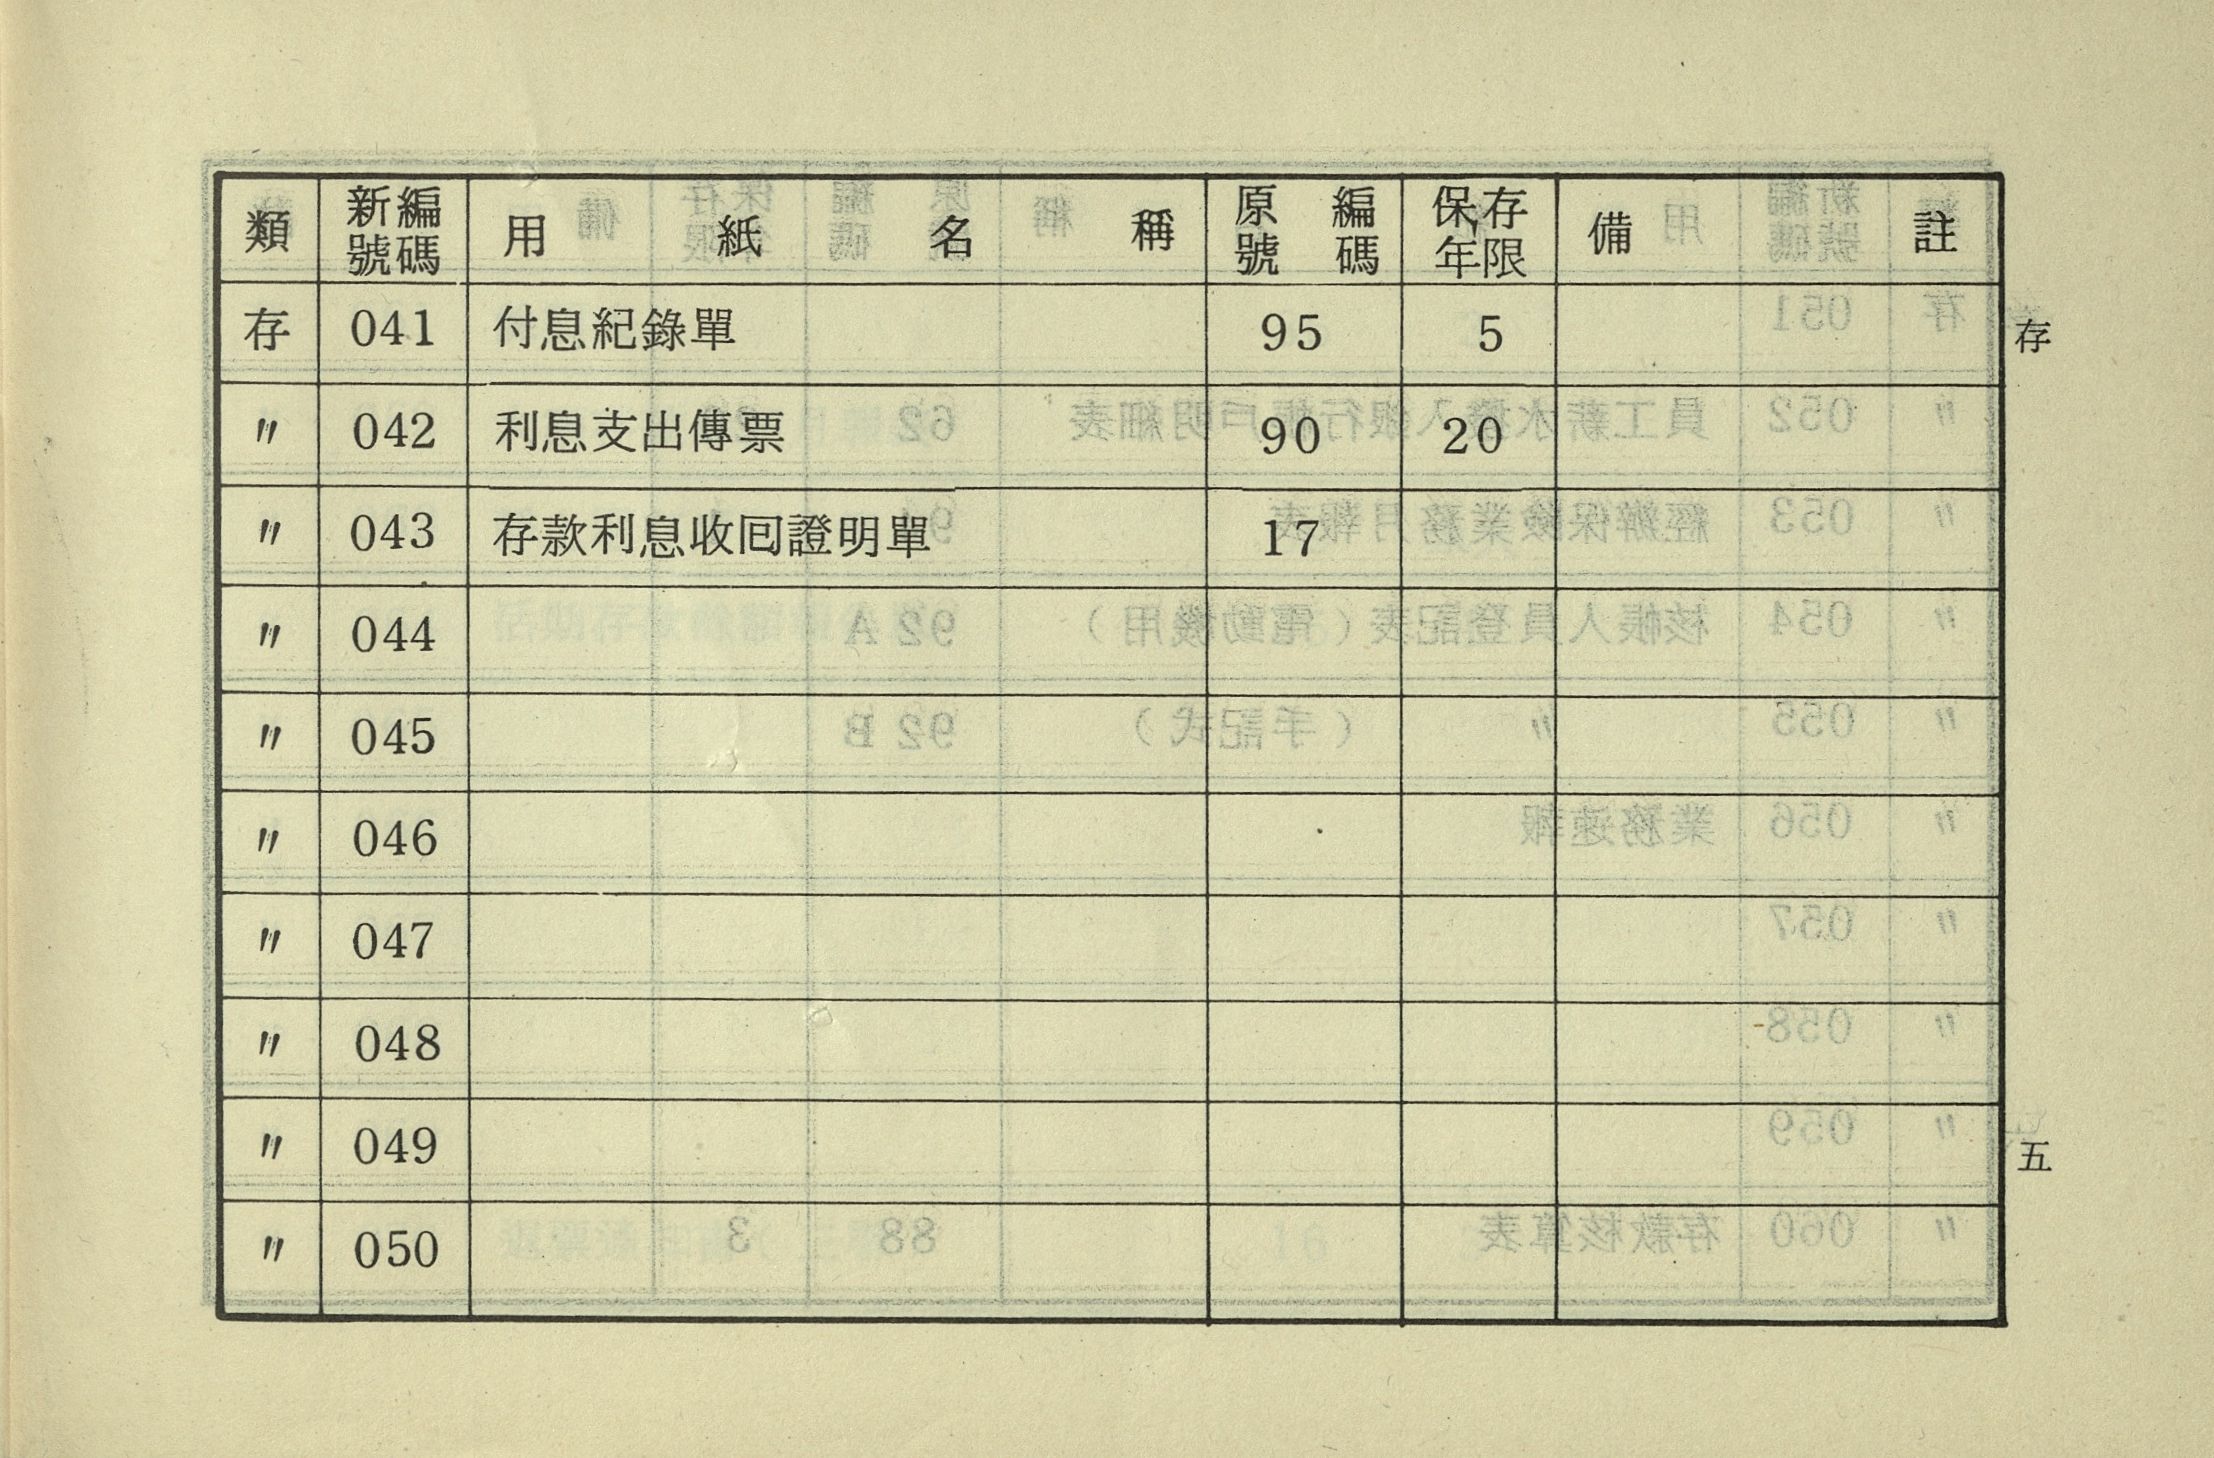 類 新編號碼 用紙名稱 原編號碼 保存年限 備註
存 041 付息紀錄單 95 5
〃 042 利息支出傳票 90 20
〃 043 存款利息收回證明單 17
〃 044
〃 045
〃 046
〃 047
〃 048
〃 049
〃 050
存
五